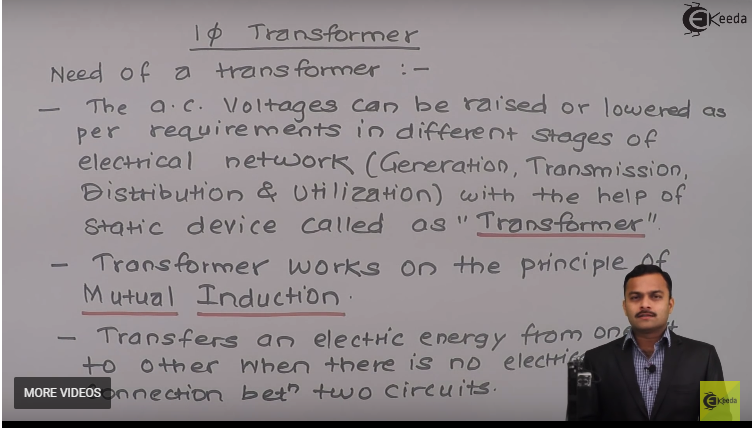 1ϕ Transformer
Ekeeda
Need of a transformer :-
- The a.c. Voltages can be raised or lowered as
per requirements in different stages of
electrical network (Generation, Transmission,
Distribution & Utilization) with the help of
static device called as "Transformer".
- Transformer works on the principle of
Mutual Induction.
- Transfers an electric energy from
to other when there is no
connection betn two circuits.
MORE VIDEOS
Ekeeda